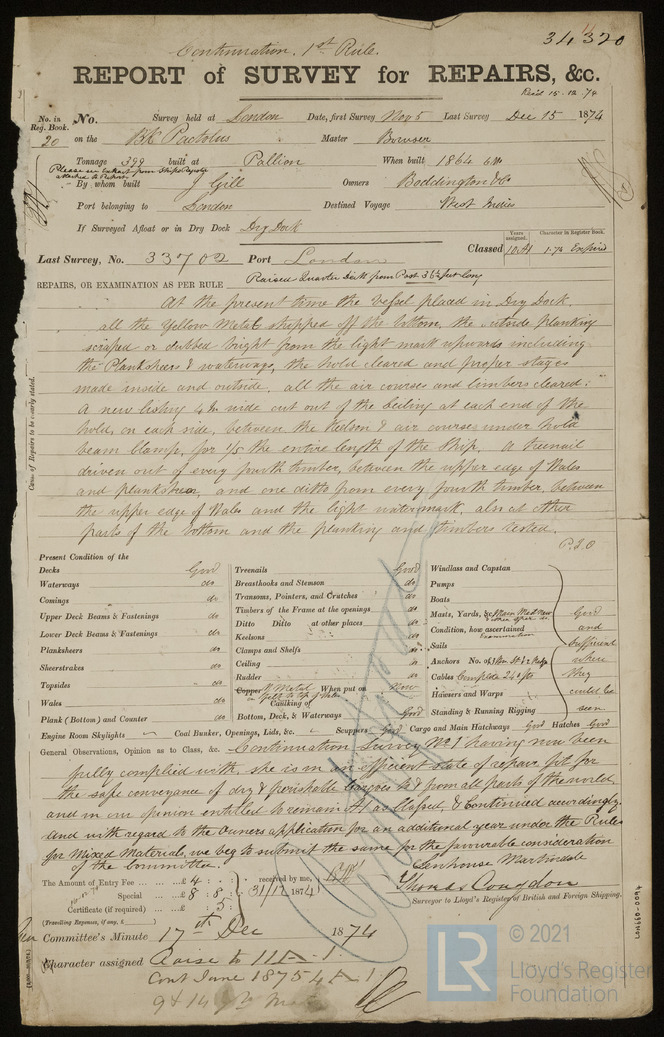 Continuation. 1st Rule.
34320
REPORT of SURVEY for REPAIRS, &c.
Recd 15.12.74
No. in Reg. Book. No. Survey held at London Date, first Survey Nov 5 Last Survey Dec 15 1874
20 on the Bk Pactolus Master Bowser
Tonnage 399 built at Pallion When built 1864 6 Mo
Please see extract from Ship's Register attached to Report
By whom built J Gill Owners Boddington & Co
Port belonging to London Destined Voyage West Indies
If Surveyed Afloat or in Dry Dock Dry Dock
Last Survey, No. 33702 Port London Classed Years assigned. 10 A1 Character in Register Book. 1.74 Expired
Raised Quarter Deck from Post 36½ feet long
REPAIRS, OR EXAMINATION AS PER RULE
At the present time the Vessel placed in Dry Dock,
all the Yellow Metal stripped off the bottom, the outside planking
scraped or dubbed bright from the light mark upwards including
the Planksheers & waterways, the hold cleared and proper stages
made inside and outside, all the air courses and limbers cleared:
a new listing 4 in wide cut out of the ceiling at each end of the
hold, on each side, between the Keelson & air courses under hold
beam Clamp, for 1/5 the entire length of the Ship. A treenail
driven out of every fourth timber, between the upper edge of Wales
and planksheer, and one ditto from every fourth timber, between
the upper edge of Wales and the light watermark, also at other
parts of the bottom and the planking and timbers tested.
P.T.O
Case of Repairs to be clearly stated.
Present Condition of the
Decks Good
Waterways do
Comings do
Upper Deck Beams & Fastenings do
Lower Deck Beams & Fastenings do
Planksheers do
Sheerstrakes do
Topsides do
Wales do
Plank (Bottom) and Counter do
Treenails Good
Breasthooks and Stemson do
Transoms, Pointers, and Crutches do
Timbers of the Frame at the openings do
Ditto Ditto at other places do
Keelsons do
Clamps and Shelfs do
Ceiling do
Rudder do
Copper Y Metal When put on Now
Caulking of
Bottom, Deck, & Waterways Good
Windlass and Capstan
Pumps
Boats
Masts, Yards, &c
Condition, how ascertained examination
Sails
Anchors No. of
Cables Complete 240 fms
Hawsers and Warps
Standing & Running Rigging
Good
and
Sufficient
where
they
could be
seen
Engine Room Skylights Coal Bunker, Openings, Lids, &c. Scuppers Good Cargo and Main Hatchways Good Hatches Good
General Observations, Opinion as to Class, &c. Continuation Survey No 1 having now been
fully complied with, she is in an efficient state of repair fit for
the safe conveyance of dry & perishable Cargoes to & from all parts of the world,
and in our opinion entitled to remain A1 as Classed, & Continued accordingly.
and with regard to the Owners application for an additional year under the Rules
for Mixed Materials, we beg to submit the same for the favourable consideration
of the Committee.
The Amount of Entry Fee ... £4 : :
Special ... £8 : 8 :
Certificate (if required) ... £ : 5 :
received by me,
31/12 1874
(Travelling Expenses, if any, £ )
Senhouse Martindale
Thomas Congdon
Surveyor to Lloyd's Register of British and Foreign Shipping.
Committee's Minute 17th Dec 1874
Character assigned Raise to 11 A. 1.
Cont June 1875 4 A 1.
LON660-0094
LR
© 2021
Lloyd's Register
Foundation